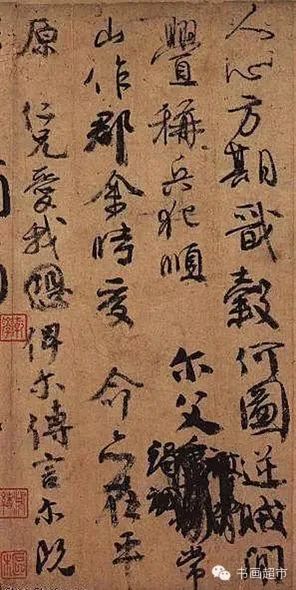 人心方期戩穀何圖逆賊閒
釁稱兵犯順 尔父竭誠常
山作郡余時受 命亦在平
原仁兄愛我恐俾尔傳言尔既
书画超市